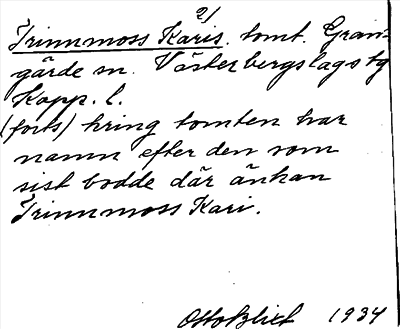 2/
Trinnmoss Karis. tomt. Gran-
gärde sn. Västerbergslags tg
Kopp. l.
(forts) kring tomten har
namn efter den som
sist bodde där änkan
Trinnmoss Kari.
Otto Blixt 1934